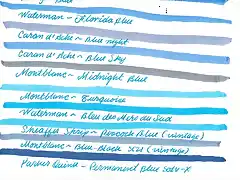 Waterman ~ Florida Blue
Caran d'Ache ~ Blue night
Caran d'Ache ~ Blue Sky
Montblanc ~ Midnight Blue
Montblanc ~ Turquoise
Waterman ~ Bleu des Mers du Sud
Sheaffer Skrip ~ Peacock Blue (vintage)
Montblanc ~ Blue-Black (vintage)
Parker Quink ~ Permanent Blue Solv-X